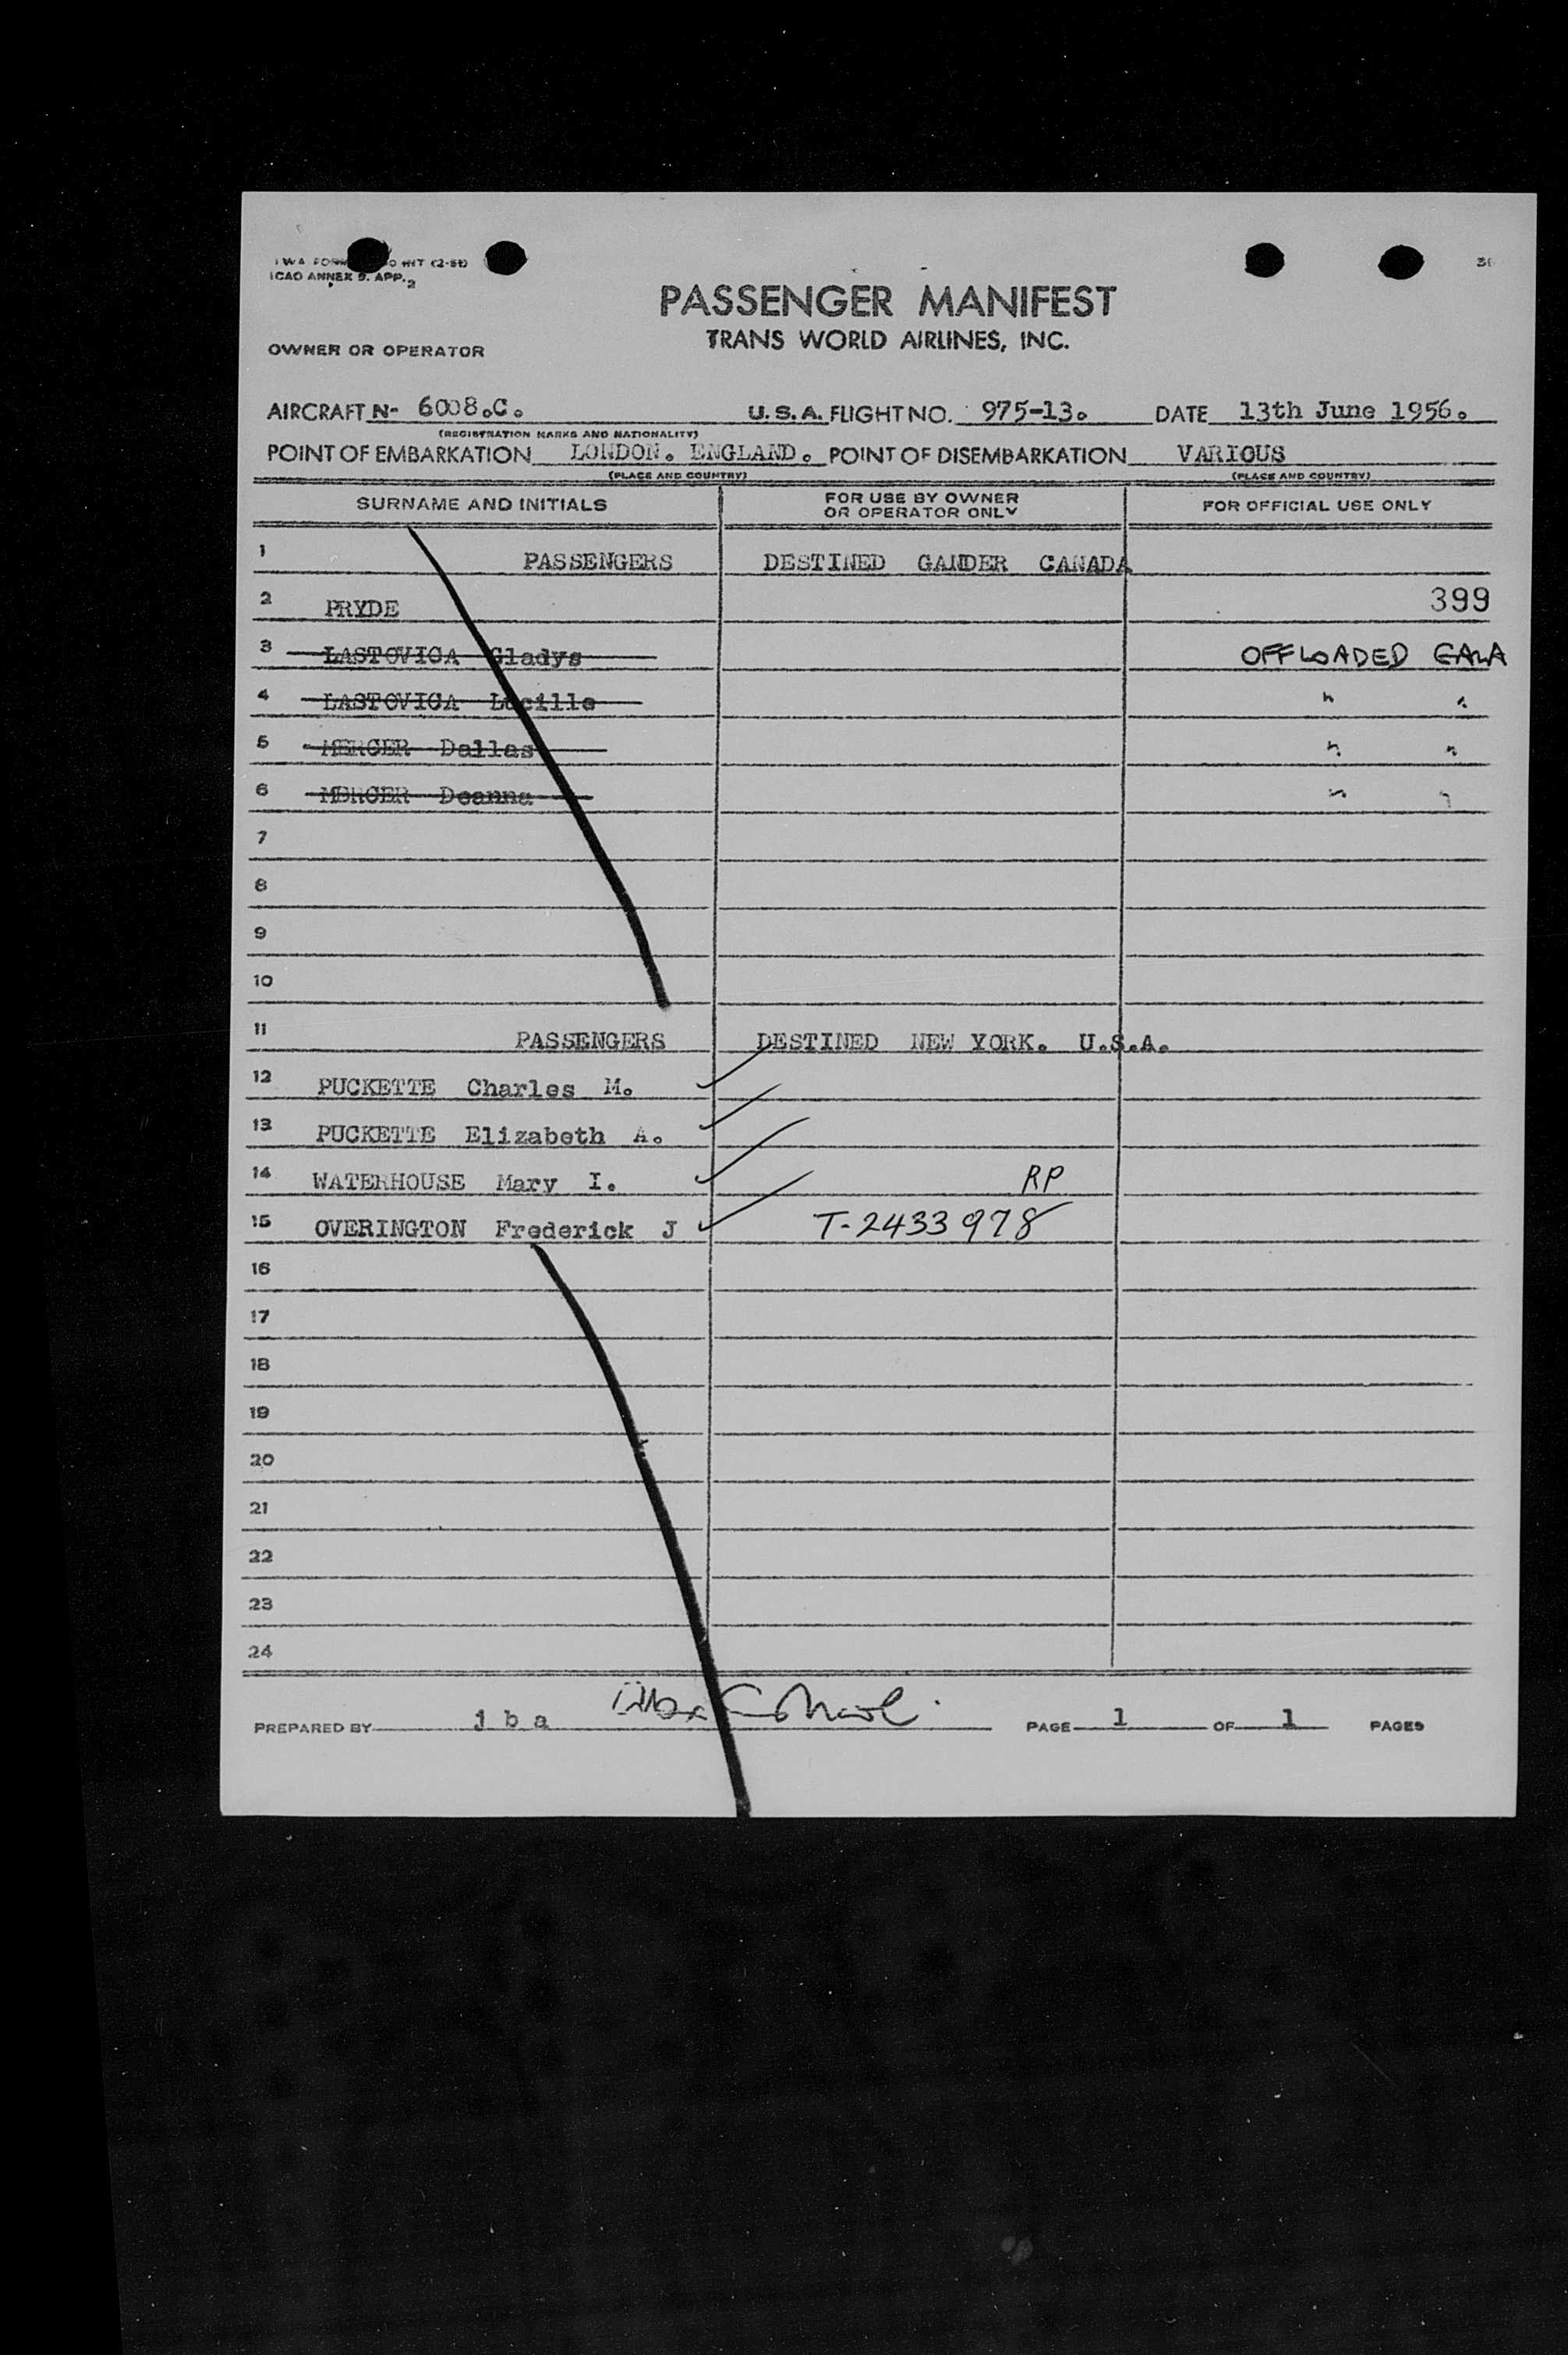 ICAO ANNEX 9. APP. 2
PASSENGER MANIFEST
TRANS WORLD AIRLINES, INC.
OWNER OR OPERATOR
AIRCRAFT N- 6008.C. U.S.A. FLIGHT NO. 975-13. DATE 13th June 1956.
(REGISTRATION MARKS AND NATIONALITY)
POINT OF EMBARKATION LONDON. ENGLAND. POINT OF DISEMBARKATION VARIOUS
(PLACE AND COUNTRY) (PLACE AND COUNTRY)
SURNAME AND INITIALS FOR USE BY OWNER OR OPERATOR ONLY FOR OFFICIAL USE ONLY
1 PASSENGERS DESTINED GANDER CANADA
2 PRYDE 399
3 LASTOVICA Gladys OFFLOADED
4 LASTOVICA Lucille " "
5 MERCER Dallas " "
6 MERCER Deanna " "
7
8
9
10
11 PASSENGERS DESTINED NEW YORK. U.S.A.
12 PUCKETTE Charles M.
13 PUCKETTE Elizabeth A.
14 WATERHOUSE Mary I. RP
15 OVERINGTON Frederick J T-2433978
16
17
18
19
20
21
22
23
24
PREPARED BY j b a PAGE 1 OF 1 PAGES